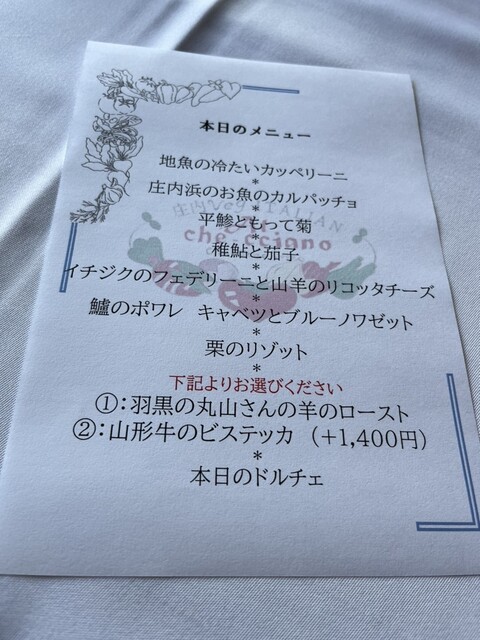 本日のメニュー
地魚の冷たいカッペリーニ
*
庄内浜のお魚のカルパッチョ
*
庄内Veg ITALIAN
平鯵ともって菊
*
稚鮎と茄子
*
イチジクのフェデリーニと山羊のリコッタチーズ
*
鱸のポワレ キャベツとブルーノワゼット
*
栗のリゾット
*
下記よりお選びください
①:羽黒の丸山さんの羊のロースト
②:山形牛のビステッカ (+1,400円)
*
本日のドルチェ